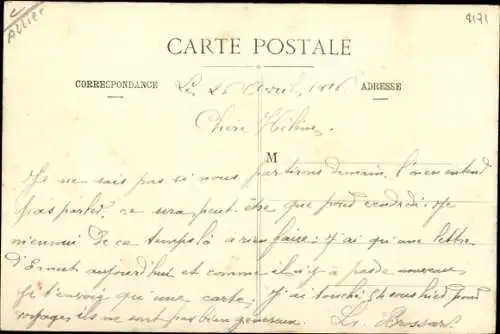 Allier
8171
CARTE POSTALE
CORRESPONDANCE
ADRESSE
Le 25 Avril 1916
Chère Hélène,
M
Je ne sais pas si nous partirons demain. l'on en entend
pas parler, ce sera peut-être que pour vendredi. Je
m'ennui de ce temps là à rien faire. J'ai qu'une lettre
d'Ernest aujourd'hui et comme il n'y a pas de nouveau
je t'envoie qu'une carte. J'ai touché sous pour
voyages ils ne sont pas bien généreux. Brossard